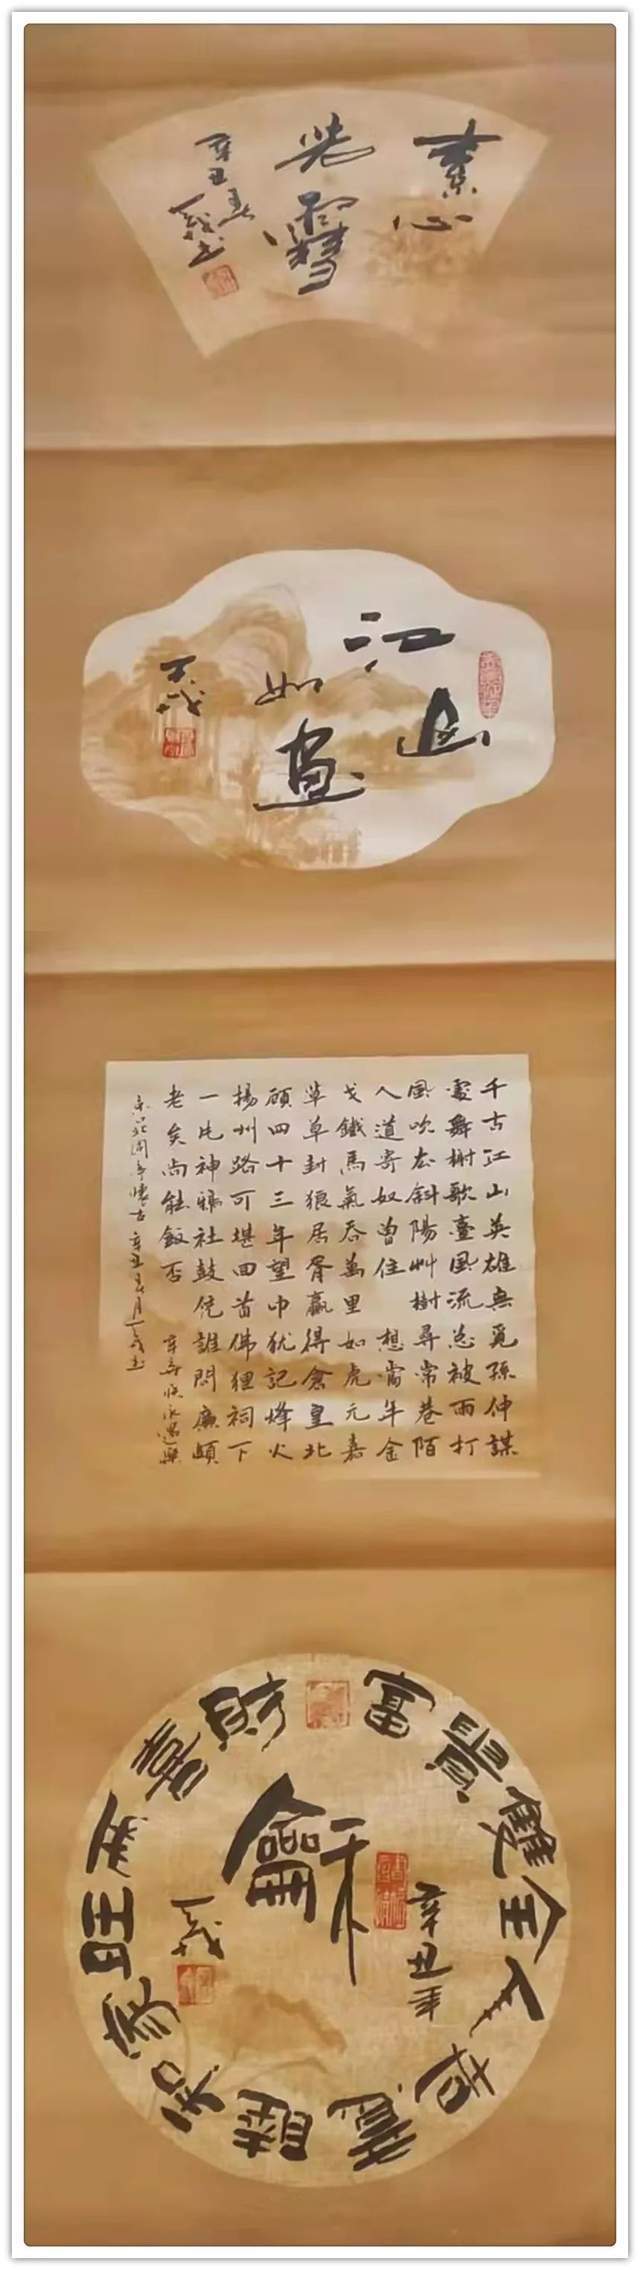 素心
雪
辛丑春
江山
如畫
千古江山英雄無覓孫仲謀
處舞榭歌臺風流总被雨打
風吹去斜陽艸樹尋常巷陌
人道寄奴曾住 想當年金
戈鐵馬氣吞萬里如虎元嘉
草草封狼居胥贏得倉皇北
顧四十三年望中犹記烽火
揚州路可堪回首佛狸祠下
一片神鴉社鼓凭誰問廉頗
老矣尚能飯否 辛弃疾永遇樂
京口北固亭懷古 辛丑春月
富貴雙全人吉睦和家旺喜財
龢
辛丑年